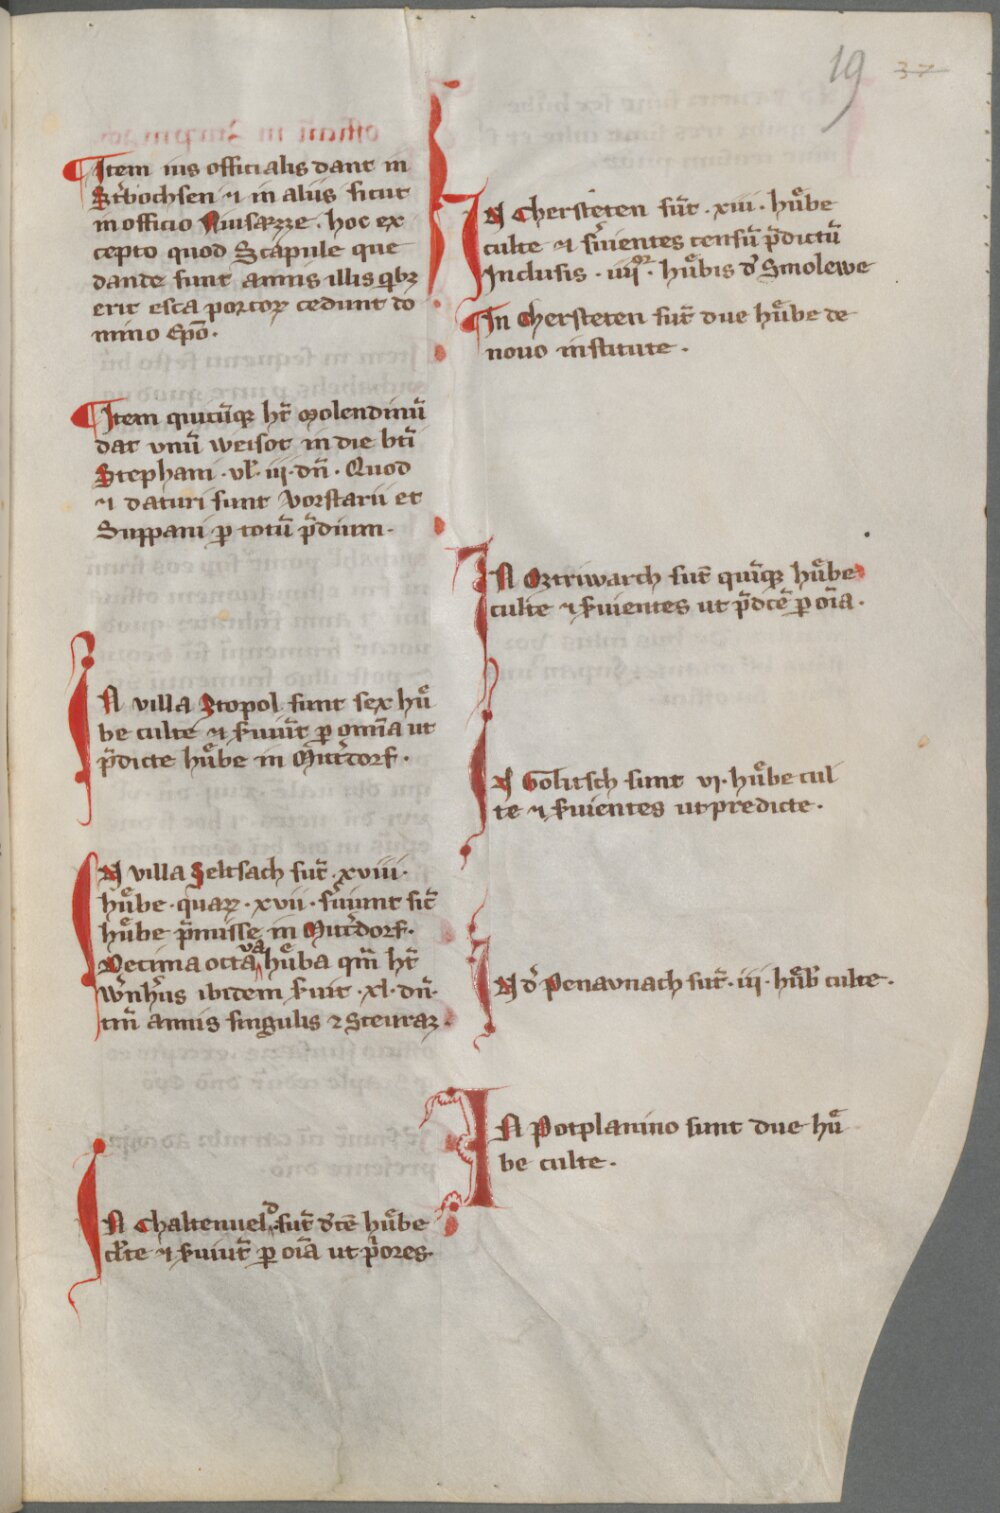 19 37
Item ius officialis dant in
Strvochsen ⁊ in aliis sicut
in officio Niusazze. hoc ex
cepto quod Scapule que
dande sunt annis illis qͥbꝫ
erit esca porcoꝝ cedunt do
mino Ep̄o.
Item quicūqꝫ hr̄ molendinū
dat vnū weisot in die bt̄i
Stephani. vl̓. iij. dn̄. Quod
⁊ daturi sunt vorstarii et
Suppani ꝑ totū p̄dium.
IN villa Stopol sunt sex hůͤ
be culte ⁊ s̓uiūt ꝑ omīa ut
p̄dicte hůͤbe in Mitt̓dorf.
IN villa Seltsach sūt. xviii.
hůͤbe. quaꝝ. xvii. s̓uiunt sic̄
hůͤbe p̄misse in Mitt̓dorf.
Decima octava hůͤba qm̄ hr̄
W̓nh̓us ibidem s̓uit. xl. dn̄.
tm̄ annis singulis ⁊ Steuraꝫ.
IN Chaltenueld. sūt dc̄e hůͤbe
cl̓te ⁊ s̓uiūt ꝑ oīa ut p̓ores.
IN Chersteten sūt. xiii. hůͤbe
culte ⁊ s̓uientes censū p̄dictū
Inclusis. iiij^or. hůͤbis d̓ Smolewe
In Chersteten sūt due hůͤbe de
nouo institute.
IN Oztriwarch sūt quīqꝫ hůͤbe
culte ⁊ s̓uientes ut p̄dc̄e ꝑ oīa.
IN Golitsch sunt vj. hůͤbe cul
te ⁊ s̓uientes ut predicte.
IN d̓ Penaunach sūt. iij. hůͤb̓ culte.
IN Potplanino sunt due hůͤ
be culte.